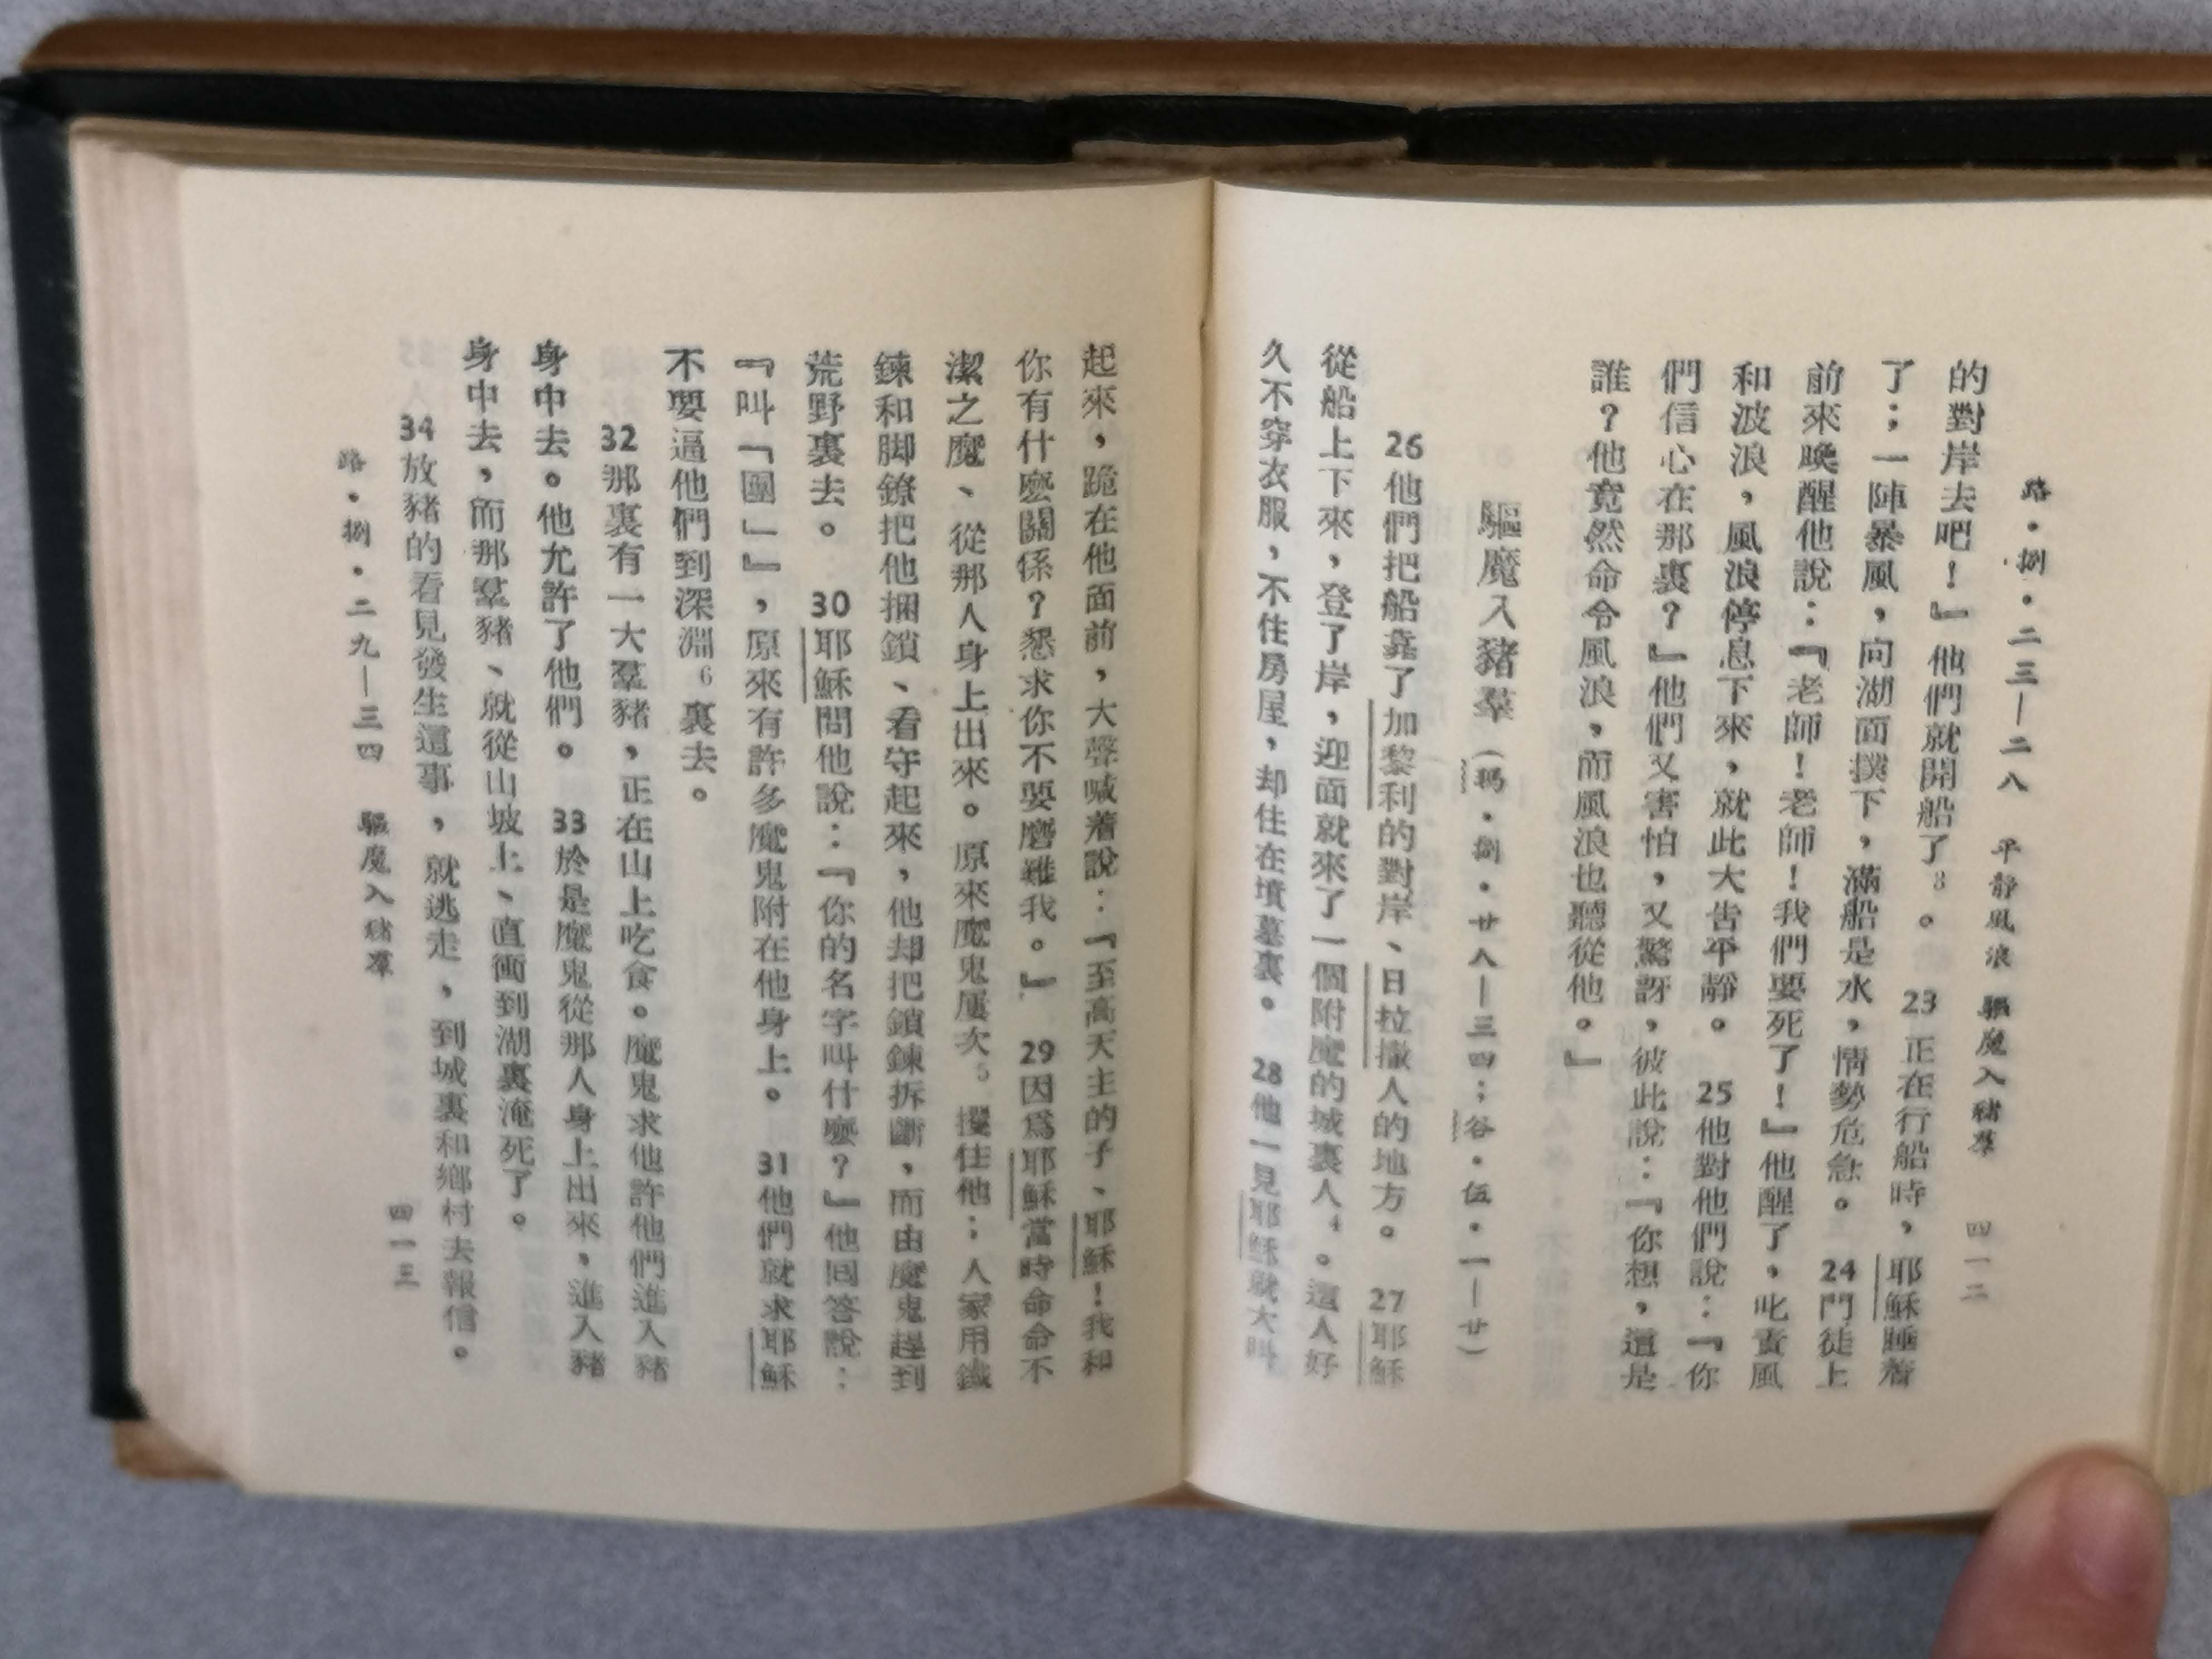 路·捌·二三—二八 平靜風浪 驅魔入豬羣 四一二
的對岸去吧！』他們就開船了3。 23正在行船時，耶穌睡着
了；一陣暴風，向湖面撲下，滿船是水，情勢危急。 24門徒上
前來喚醒他說：『老師！老師！我們要死了！』他醒了，叱責風
和波浪，風浪停息下來，就此大告平靜。 25他對他們說：『你
們信心在那裏？』他們又害怕，又驚訝，彼此說：『你想，這是
誰？他竟然命令風浪，而風浪也聽從他。』
驅魔入豬羣（瑪·捌·廿八—三四；谷·伍·一—廿）
26他們把船靠了加黎利的對岸、日拉撒人的地方。 27耶穌
從船上下來，登了岸，迎面就來了一個附魔的城裏人4。這人好
久不穿衣服，不住房屋，却住在墳墓裏。 28他一見耶穌就大叫
起來，跪在他面前，大聲喊着說：『至高天主的子、耶穌！我和
你有什麼關係？懇求你不要磨難我。』 29因爲耶穌當時命命不
潔之魔、從那人身上出來。原來魔鬼屢次5攫住他；人家用鐵
鍊和脚鐐把他捆鎖、看守起來，他却把鎖鍊拆斷，而由魔鬼趕到
荒野裏去。 30耶穌問他說：『你的名字叫什麼？』他回答說：
『叫「團」』，原來有許多魔鬼附在他身上。 31他們就求耶穌
不要逼他們到深淵6裏去。
32那裏有一大羣豬，正在山上吃食。魔鬼求他許他們進入豬
身中去。他允許了他們。 33於是魔鬼從那人身上出來，進入豬
身中去，而那羣豬、就從山坡上、直衝到湖裏淹死了。
34放豬的看見發生這事，就逃走，到城裏和鄉村去報信。
路·捌·二九—三四 驅魔入豬羣 四一三